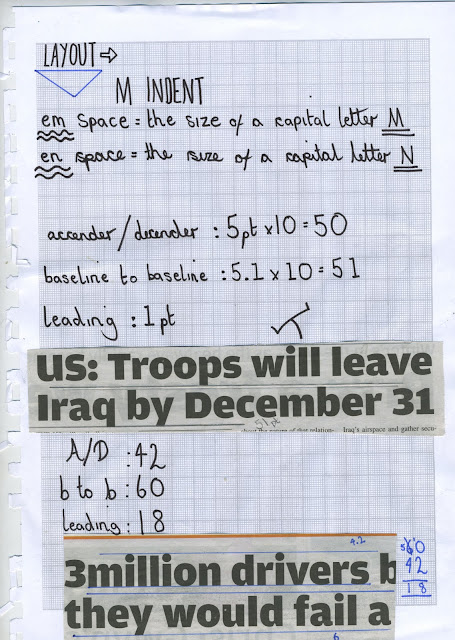 LAYOUT →
M INDENT
em space = the size of a capital letter M
en space = the size of a capital letter N
accender/decender : 5pt x 10 = 50
baseline to baseline : 5.1 x 10 = 51
leading : 1pt
US: Troops will leave
Iraq by December 31
51pt
of that relation- Iraq's airspace and gather secu-
A/D : 42
b to b : 60
leading : 18
4.2
3million drivers b
they would fail a
6
60
42
18